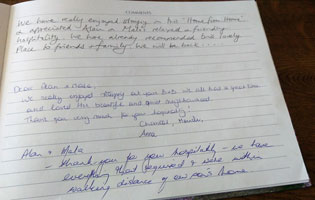 COMMENTS
We have really enjoyed staying in this "Home from Home"
& appreciated Alan & Meta's relaxed & friendly
hospitality. We have already recommended this lovely
place to friends & family! We will be back.....
Dear Alan + Meta,
We really enjoyed staying at your B+B. We all had a great time
and loved this beautiful and quiet neighbourhood.
Thank you very much for your hospitality!
Anna
Alan & Meta
- Thank you for your hospitality - we have
everything that required & were within
walking distance of our son's home.